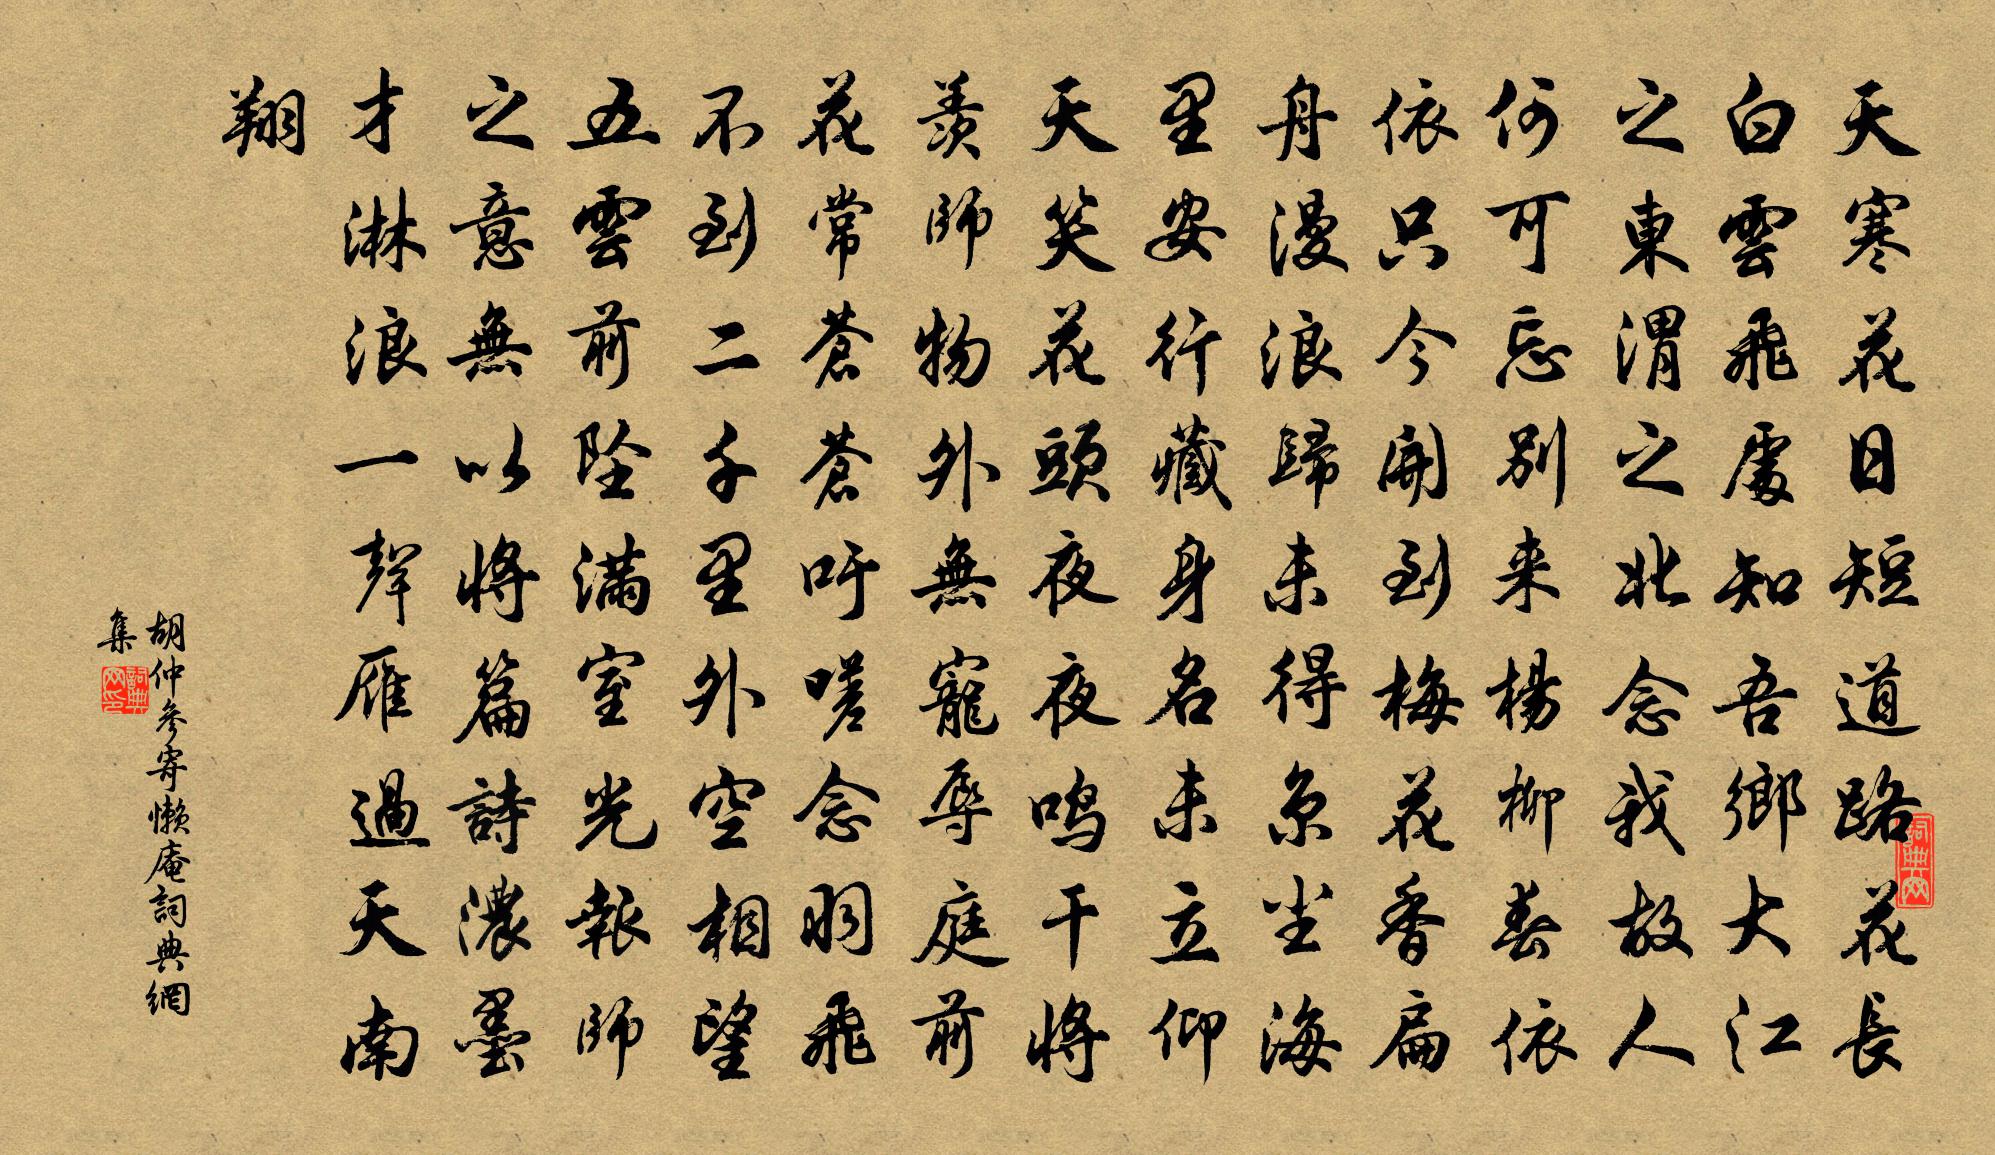 天寒花日短道路花長
白雲飛處知吾鄉大江
之東渭之北念我故人
何可忘別来楊柳春依
依只今開到梅花香扁
舟漫浪歸未得京尘海
里安行藏身名未立仰
天笑花頭夜夜鸣干將
羨師物外無寵辱庭前
花常蒼蒼吁嗟念羽飛
不到二千里外空相望
五雲前墜满室光報師
之意無以將篇詩濃墨
才淋浪一聲雁過天南
翔
胡仲參寄懒庵詞典網
集
詞典网印
詞典网